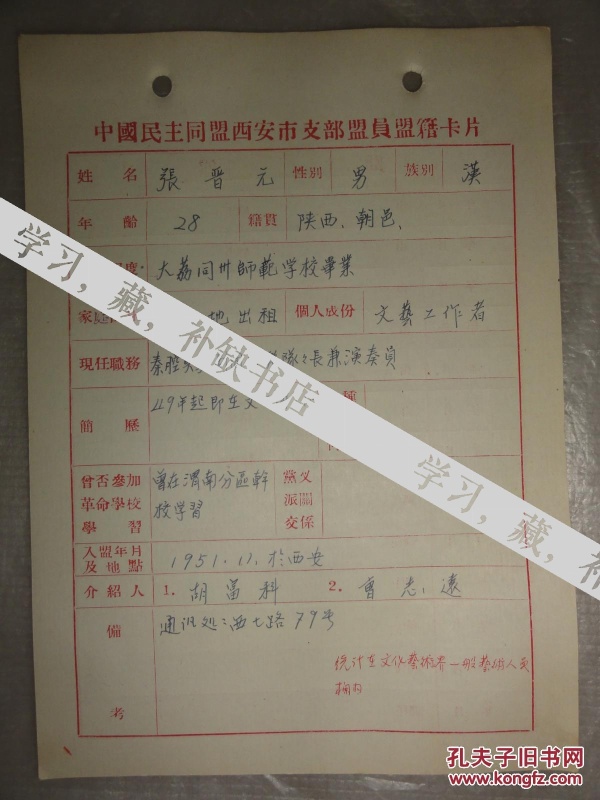 中國民主同盟西安市支部盟員盟籍卡片
姓名 張晋元 性別 男 族別 漢
年齡 28 籍貫 陕西、朝邑、
度 大荔同州師範学校畢業
家庭 地出租 個人成份 文藝工作者
現任職務 秦腔 隊々長兼演奏員
簡歷 49年起即在文 種
曾否參加革命學校學習 曾在渭南分區幹校学習 黨派關係
入盟年月及地點 1951.11.於西安
介紹人 1. 胡富科 2. 曹志遠
備考 通讯処:西七路79号
统计在文化藝術界一般藝術人员
柄内
学习,藏,补缺书店
学习,藏,补缺
孔夫子旧书网
www.kongfz.com